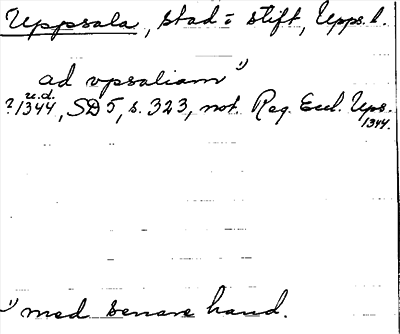 Uppsala, stad o stift, Upps. l.
ad vpsaliam 1)
u.d.
? 1344, SD 5, s. 323, not. Reg. Eccl. Ups.
1344.
1) med senare hand.